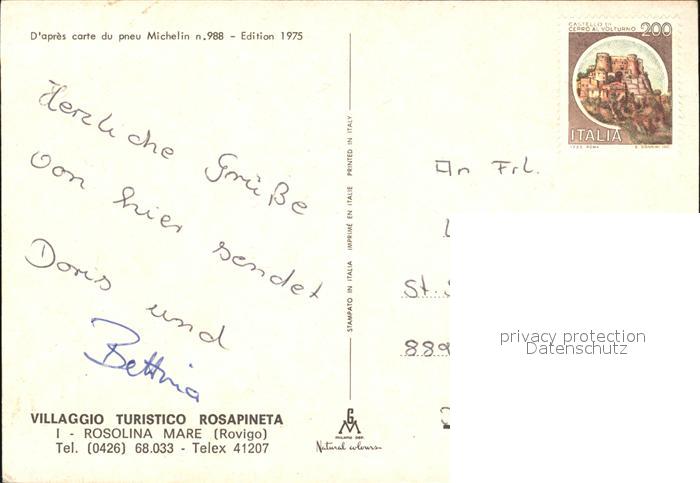 D'après carte du pneu Michelin n.988 - Edition 1975
CASTELLO DI
CERRO AL VOLTURNO 200
ITALIA
Herzliche Grüße
von hier sendet
Doris und
Bettina
VILLAGGIO TURISTICO ROSAPINETA
I - ROSOLINA MARE (Rovigo)
Tel. (0426) 68.033 - Telex 41207
STAMPATO IN ITALIA IMPRIMÉ EN ITALIE PRINTED IN ITALY
Natural colours
An Frl.
St.
889
privacy protection
Datenschutz